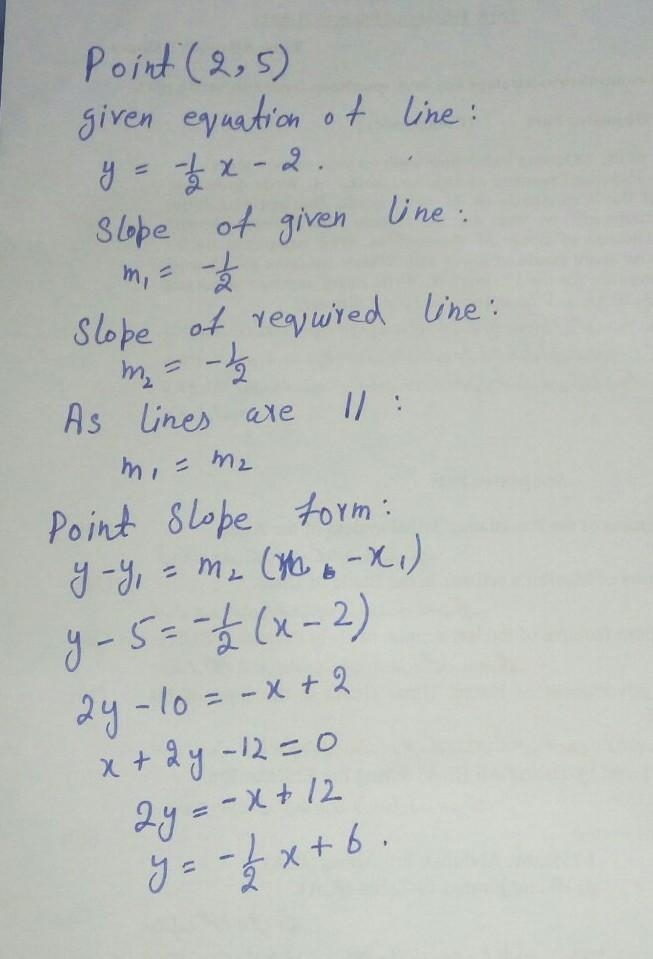 Point (2, 5)
given equation of line :
y = -1/2 x - 2 .
Slope of given line :
m₁ = -1/2
Slope of required line :
m₂ = -1/2
As lines are || :
m₁ = m₂
Point Slope form :
y - y₁ = m₂ (x - x₁)
y - 5 = -1/2 (x - 2)
2y - 10 = -x + 2
x + 2y - 12 = 0
2y = -x + 12
y = -1/2 x + 6 .